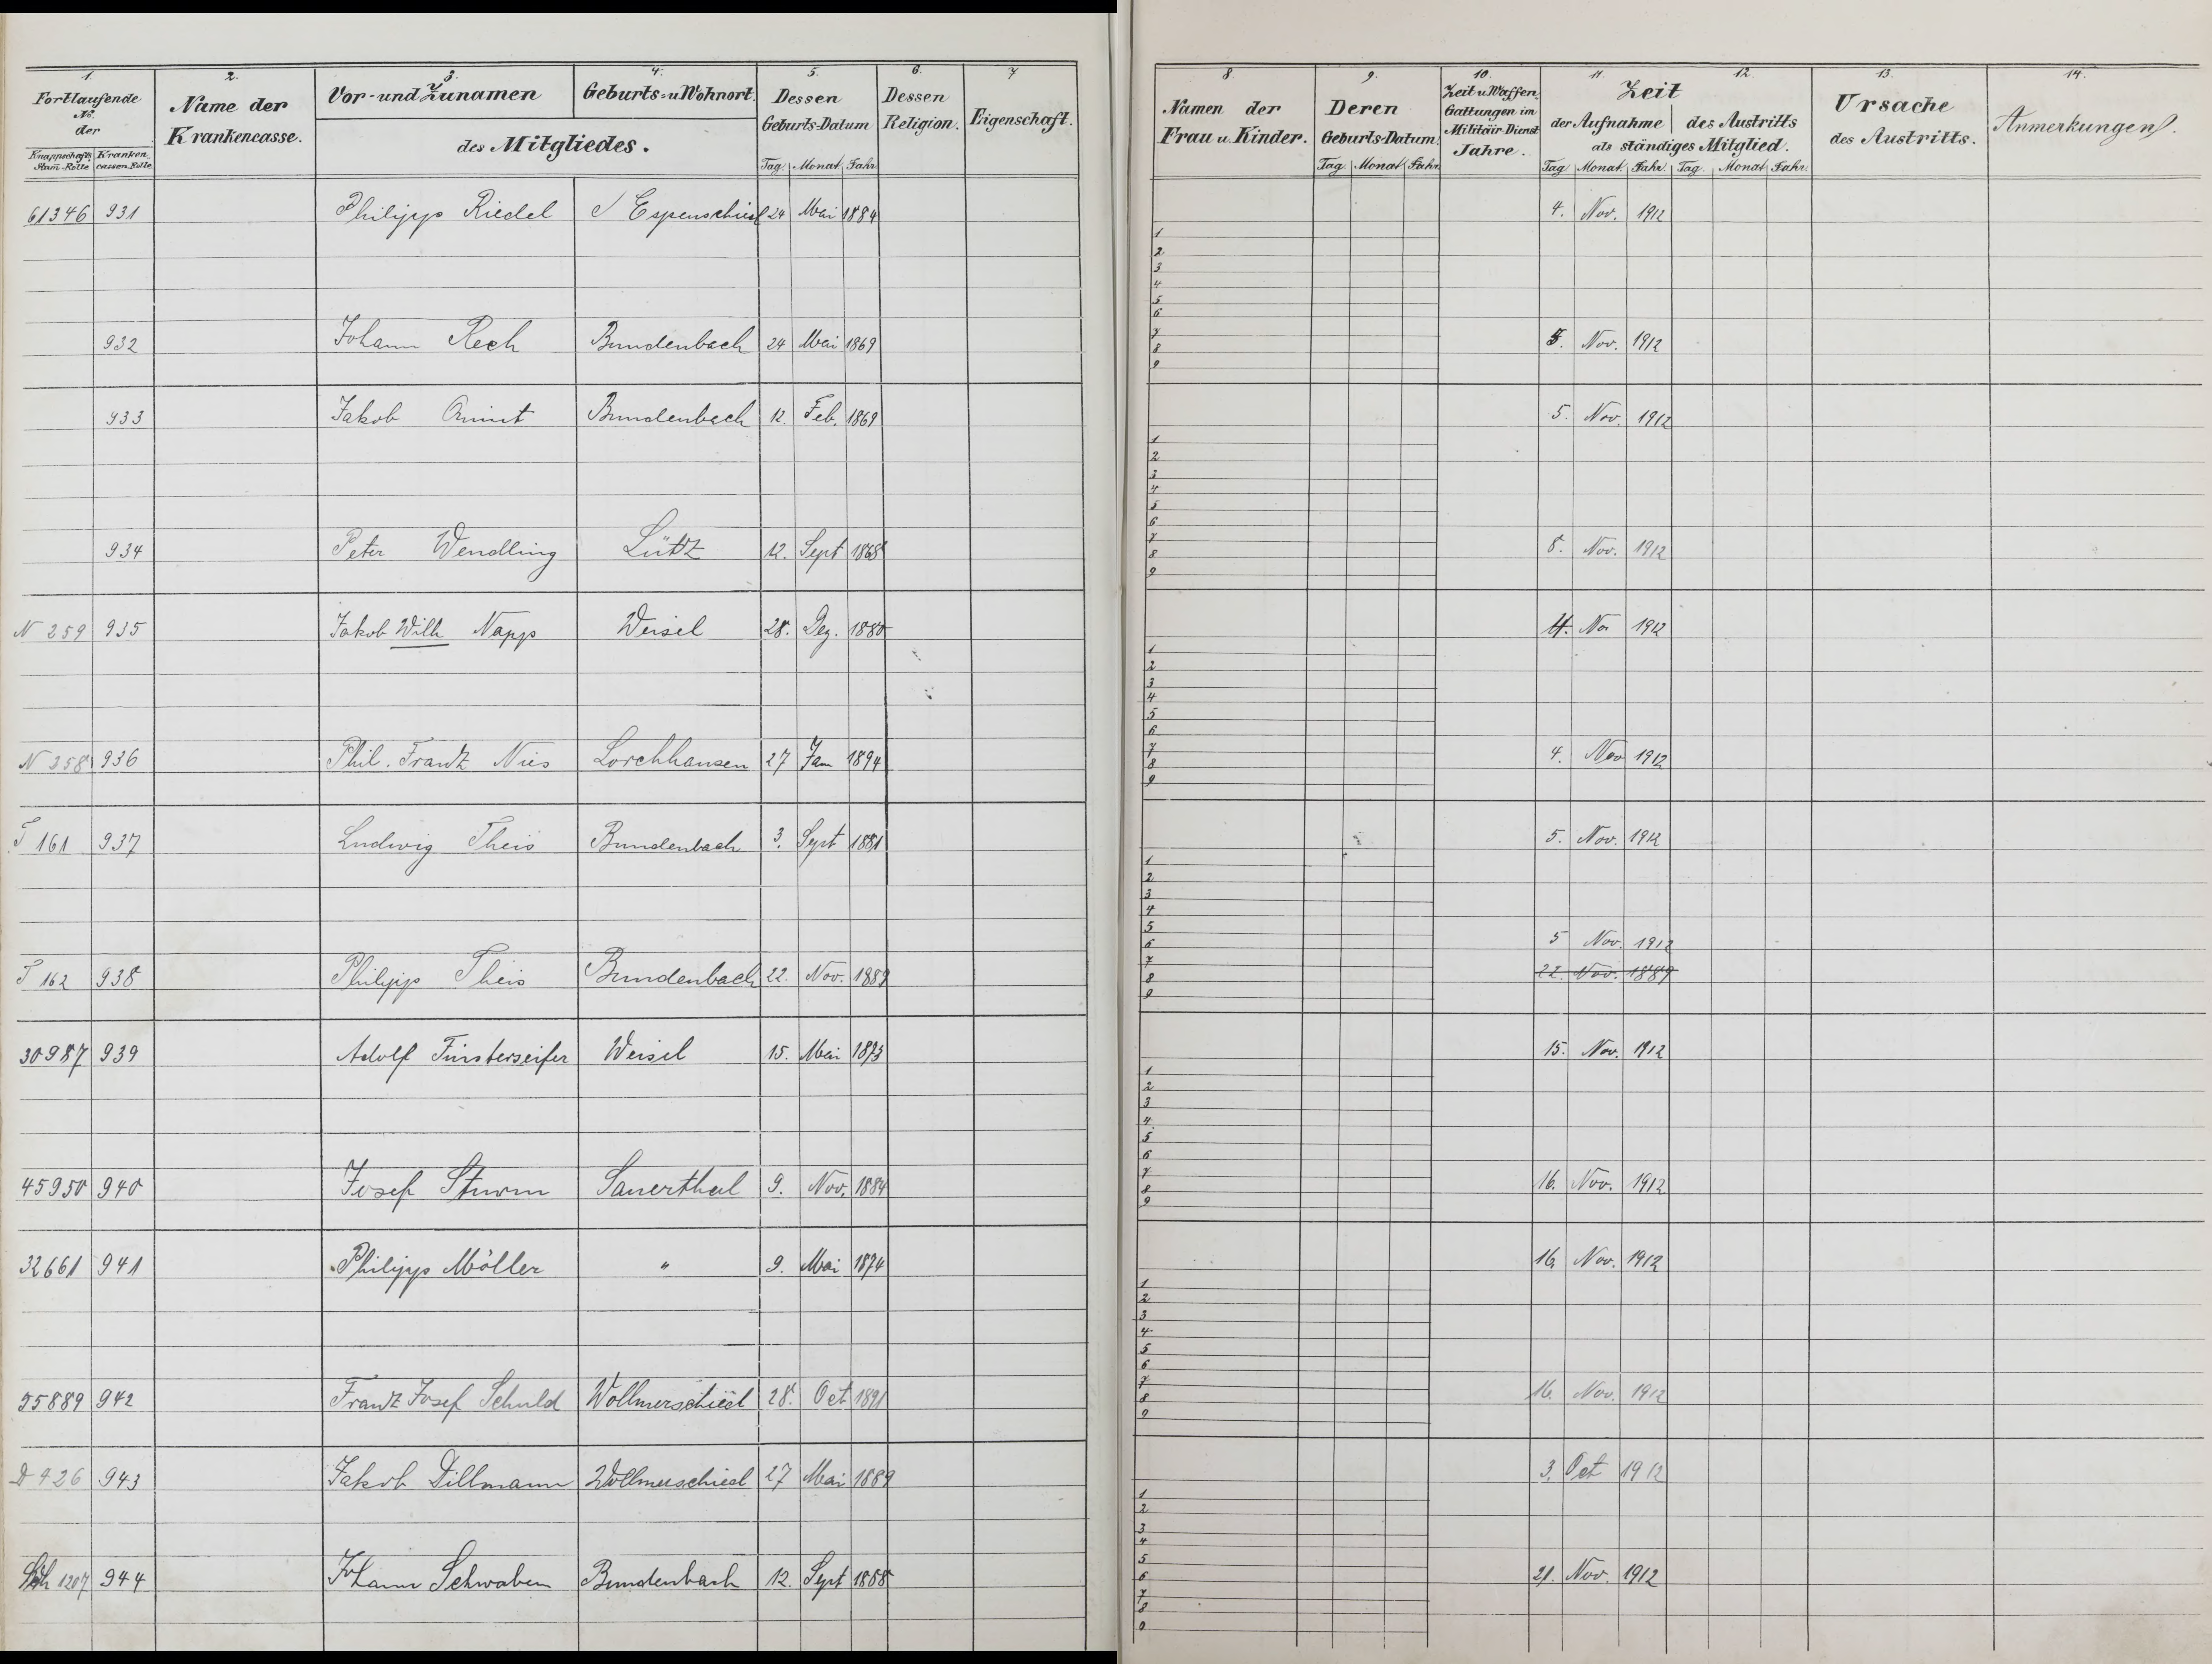 1. 2. 3. 4. 5. 6. 7
Fortlaufende No. der
Knappschafts Stam-Rolle Kranken cassen-Rolle
Name der Krankencasse.
Vor- und Zunamen Geburts- u Wohnort
des Mitgliedes.
Dessen Geburts-Datum
Tag. Monat Jahr.
Dessen Religion.
Eigenschaft.
61346 931 Philipp Riedel Espenschied 24 Mai 1884
932 Johann Rech Bundenbach 24 Mai 1869
933 Jakob Bundenbach 12. Feb. 1869
934 Peter Wendling Lütz 12. Sept 1868
N 259 935 Jakob Wilh Napp Weisel 28. Dez. 1880
N 258 936 Phil. Frantz Nies Lorchhausen 27 Jan 1894
T 161 937 Ludwig Theis Bundenbach 3. Sept 1881
T 162 938 Philipp Theis Bundenbach 22. Nov. 1889
30987 939 Adolf Finsterseifer Weisel 15. Mai 1873
45950 940 Josef Sturm Sauerthal 9. Nov. 1884
32661 941 Philipp Möller " 9. Mai 1874
55889 942 Frantz Josef Schuld Wollmerschied 28. Oct 1891
D 426 943 Jakob Dillmann Wollmerschied 27 Mai 1889
Sch 1207 944 Johann Schwaben Bundenbach 12. Sept 1868
8. 9. 10. 11. 12. 13. 14.
Namen der Frau u. Kinder.
Deren Geburts-Datum
Tag. Monat Jahr.
Zeit u. Waffen Gattungen im Militäir-Dienst Jahre.
Zeit
der Aufnahme des Austritts
als ständiges Mitglied.
Tag Monat. Jahr. Tag. Monat Jahr.
Ursache des Austritts.
Anmerkungen.
4. Nov. 1912
1
2
3
4
5
6
7
8
9
5. Nov. 1912
5. Nov. 1912
1
2
3
4
5
6
7
8
9
8. Nov. 1912
4. Nov 1912
1
2
3
4
5
6
7
8
9
4. Nov 1912
5. Nov. 1912
1
2
3
4
5
6
7
8
9
5 Nov. 1912
22. Nov. 1889
15. Nov. 1912
1
2
3
4
5
6
7
8
9
16. Nov. 1912
16. Nov. 1912
1
2
3
4
5
6
7
8
9
16. Nov. 1912
3. Oct 1912
1
2
3
4
5
6
7
8
9
21. Nov. 1912